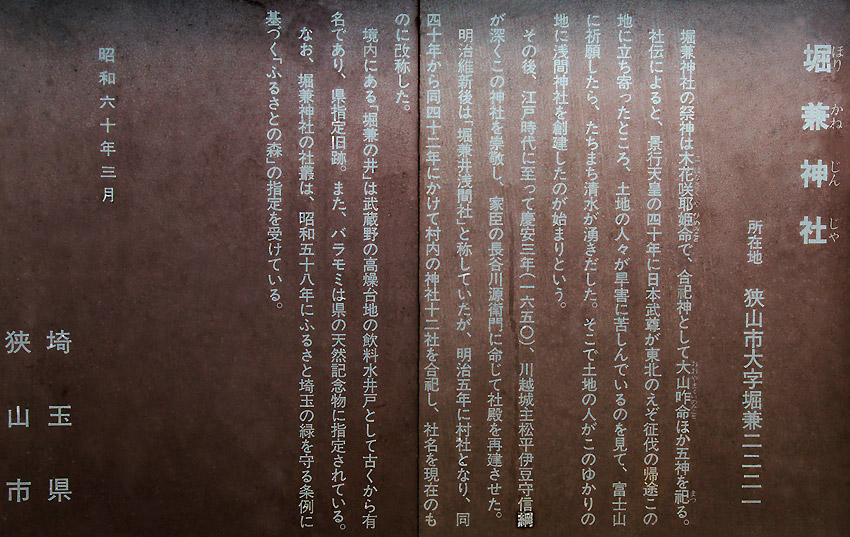 堀兼神社
所在地 狭山市大字堀兼二二二一
堀兼神社の祭神は木花咲耶姫命で、合祀神として大山咋命ほか五神を祀る。
社伝によると、景行天皇の四十年に日本武尊が東北のえぞ征伐の帰途この
地に立ち寄ったところ、土地の人々が旱害に苦しんでいるのを見て、富士山
に祈願したら、たちまち清水が湧きだした。そこで土地の人がこのゆかりの
地に浅間神社を創建したのが始まりという。
その後、江戸時代に至って慶安三年(一六五〇)、川越城主松平伊豆守信綱
が深くこの神社を崇敬し、家臣の長谷川源衛門に命じて社殿を再建させた。
明治維新後は「堀兼井浅間社」と称していたが、明治五年に村社となり、同
四十年から同四十二年にかけて村内の神社十二社を合祀し、社名を現在のも
のに改称した。
境内にある「堀兼の井」は武蔵野の高燥台地の飲料水井戸として古くから有
名であり、県指定旧跡。また、バラモミは県の天然記念物に指定されている。
なお、堀兼神社の社叢は、昭和五十八年にふるさと埼玉の緑を守る条例に
基づく「ふるさとの森」の指定を受けている。
昭和六十年三月
埼玉県
狭山市